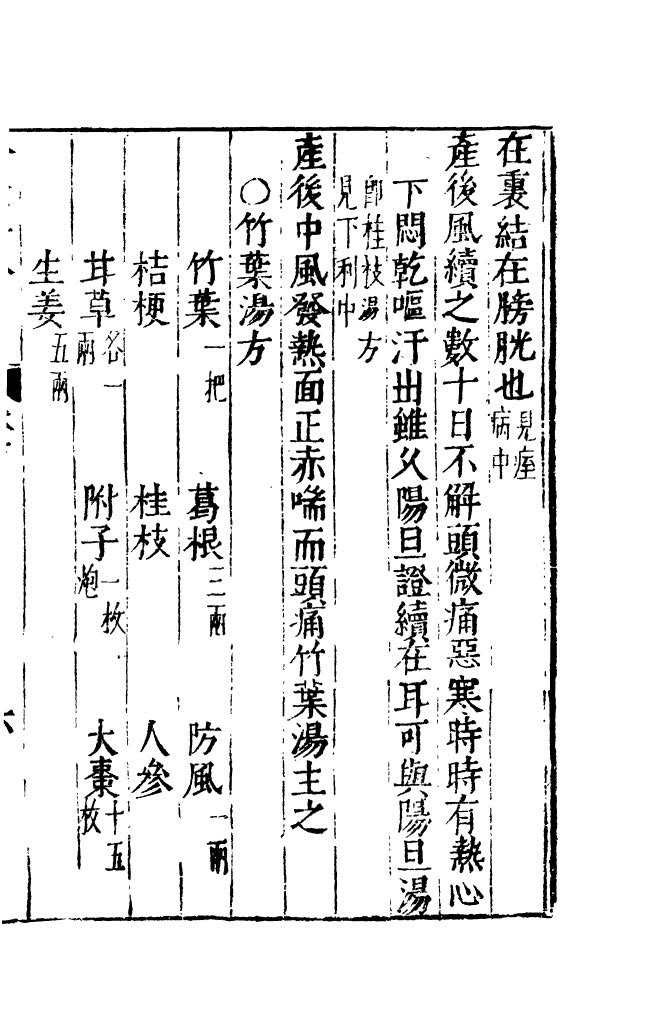 在裏結在膀胱也見痓病中
產後風續之數十日不解頭微痛惡寒時時有熱心
下悶乾嘔汗出雖久陽旦證續在耳可與陽旦湯
卽桂枝湯方見下利中
產後中風發熱面正赤喘而頭痛竹葉湯主之
○竹葉湯方
竹葉一把 葛根三兩 防風一兩
桔梗 桂枝 人參
甘草各一兩 附子一枚炮 大棗十五枚
生姜五兩